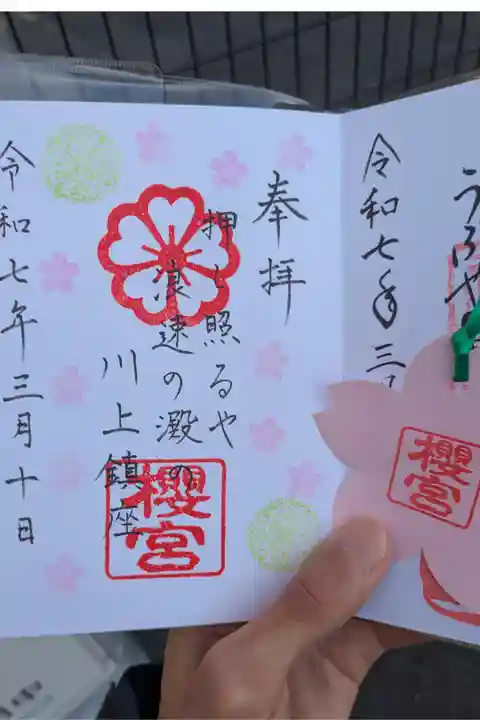 令和七年三
奉拝
押し照るや
浪速の澱の
川上鎮座
櫻宮
令和七年三月十日
櫻宮